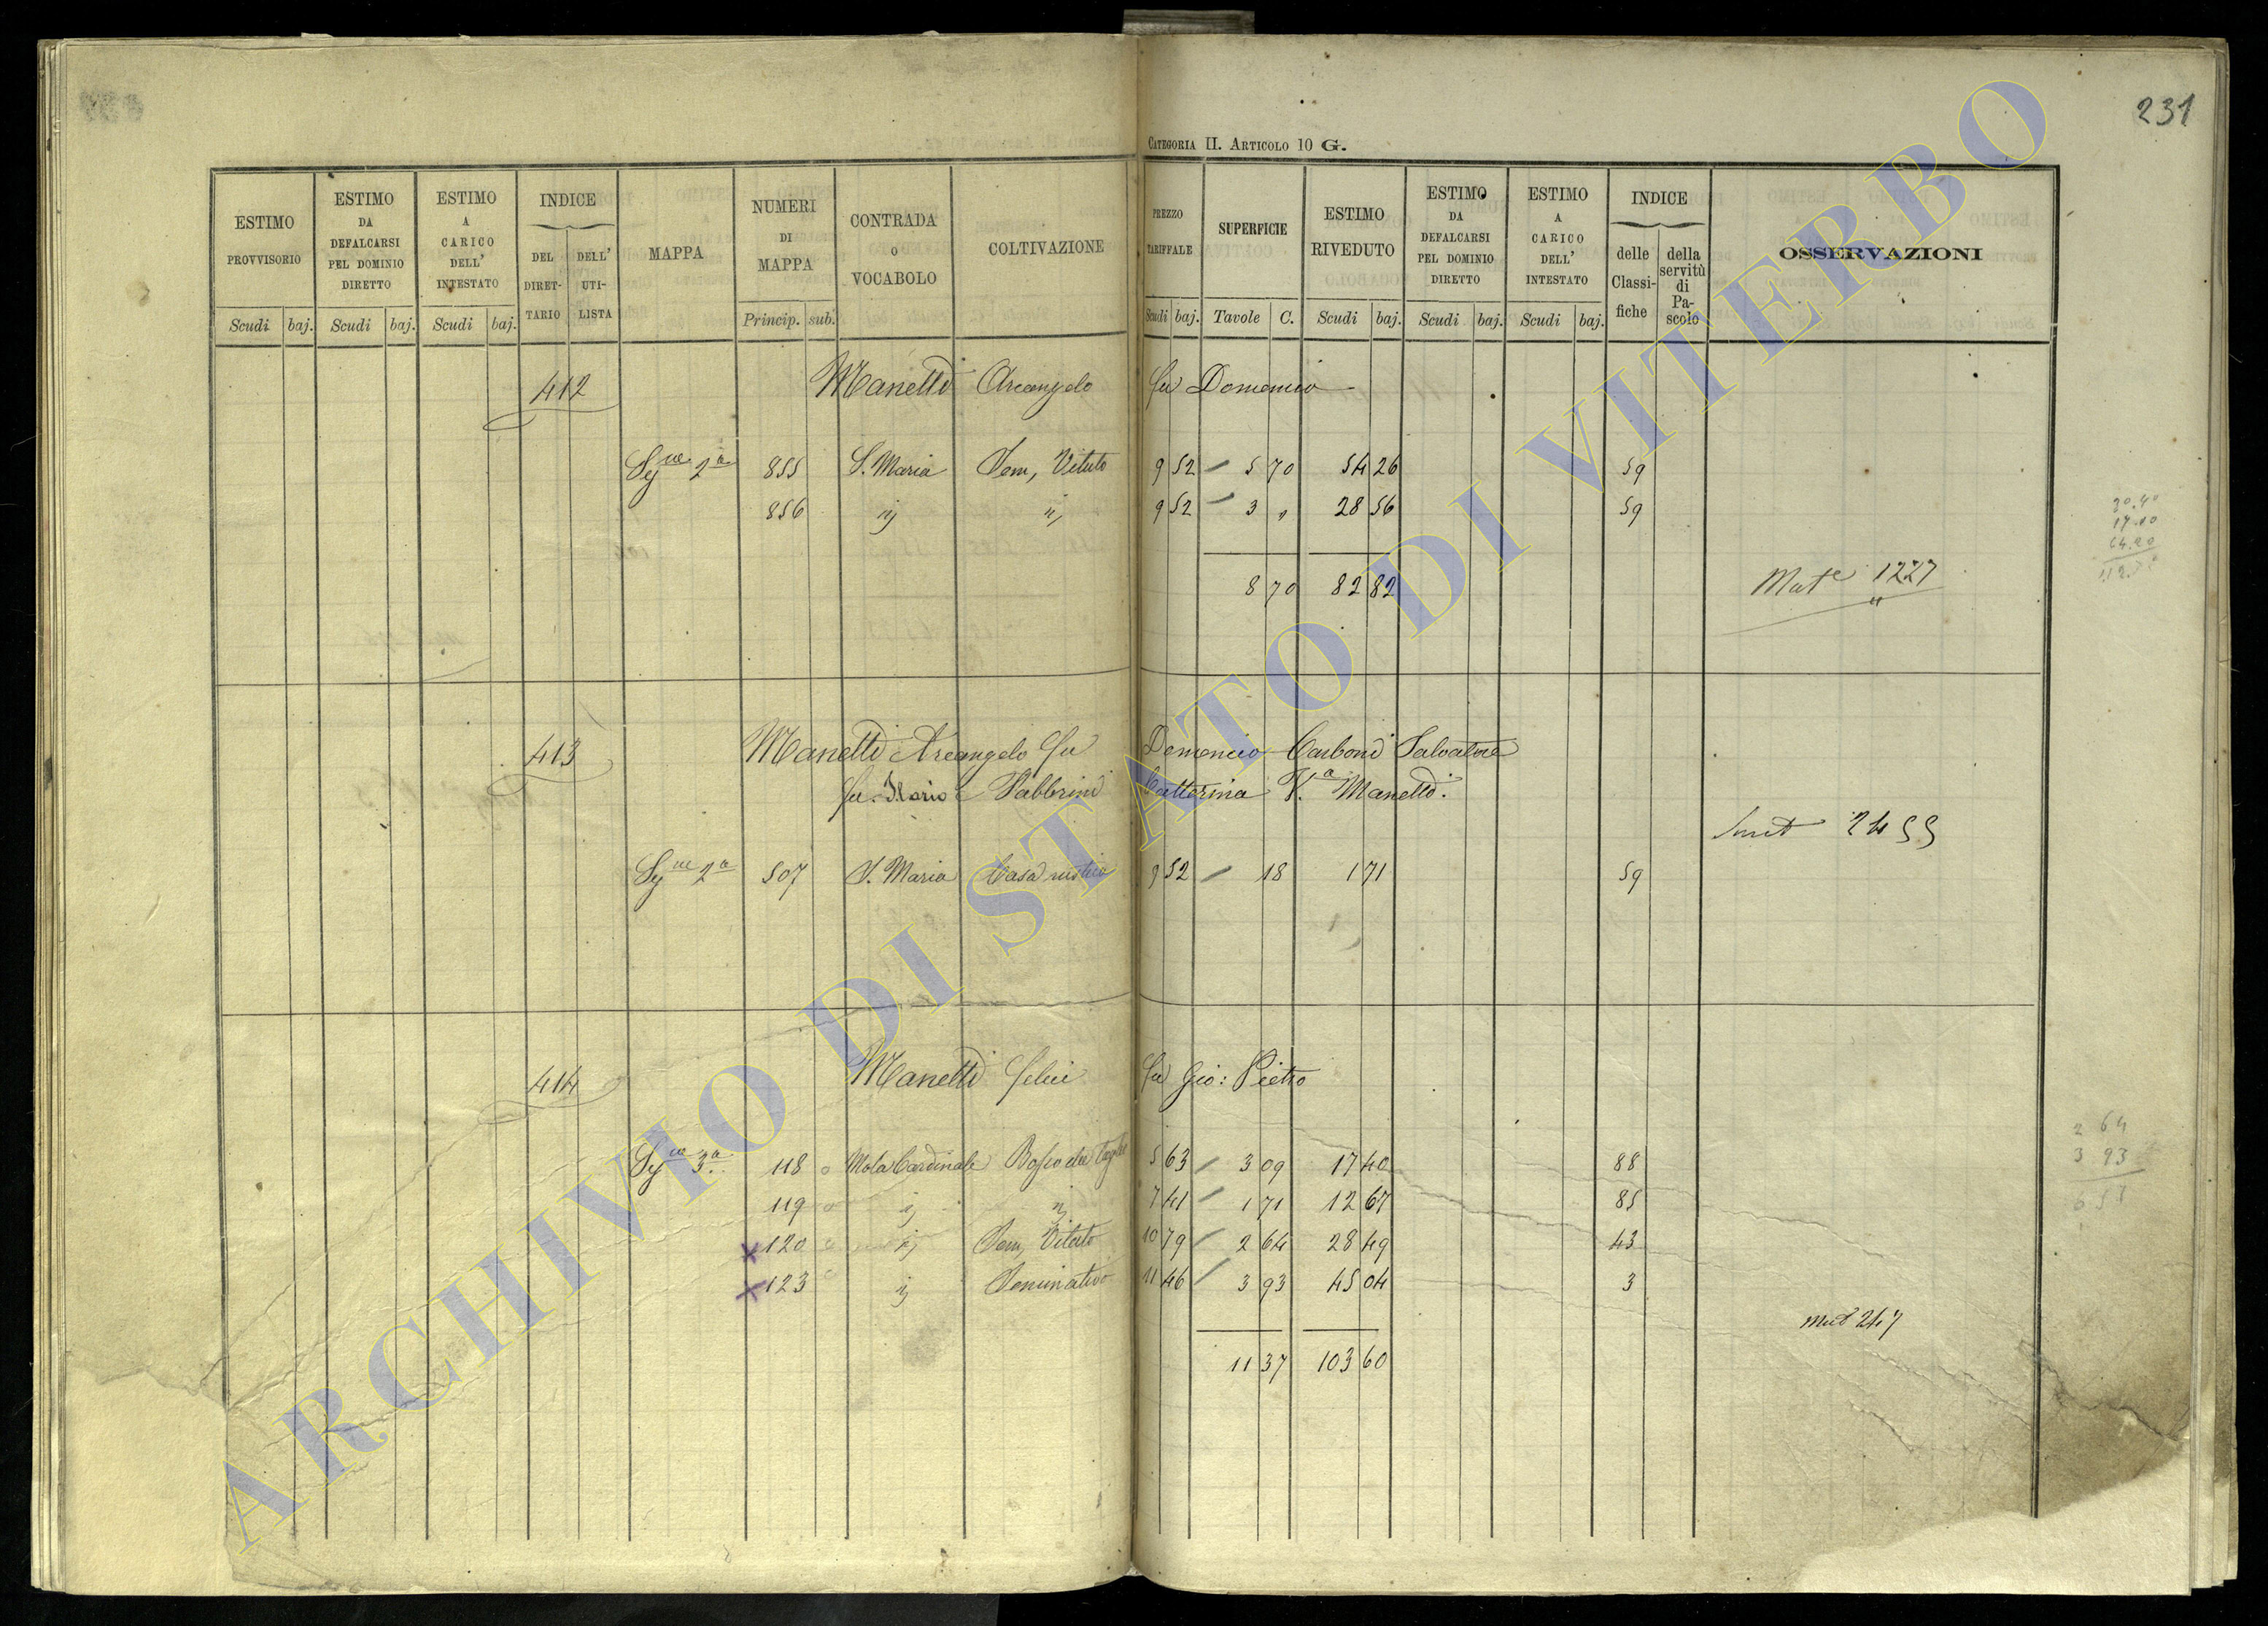 231
CATEGORIA II. ARTICOLO 10 G.
ESTIMO PROVVISORIO
ESTIMO DA DEFALCARSI PEL DOMINIO DIRETTO
ESTIMO A CARICO DELL' INTESTATO
INDICE
DEL DIRET-TARIO
DELL' UTI-LISTA
MAPPA
NUMERI DI MAPPA
CONTRADA O VOCABOLO
COLTIVAZIONE
PREZZO TARIFFALE
SUPERFICIE
ESTIMO RIVEDUTO
ESTIMO DA DEFALCARSI PEL DOMINIO DIRETTO
ESTIMO A CARICO DELL' INTESTATO
INDICE
delle Classi-fiche
della servitù di Pa-scolo
OSSERVAZIONI
Scudi baj. Scudi baj. Scudi baj. Princip. sub. Scudi baj. Tavole C. Scudi baj. Scudi baj. Scudi baj.
412 Manetti Arcangelo fu Domenico
Sez.ne 2a 855 S. Maria Sem, Vitato 9 52 5 70 54 26 59
856 " " 9 52 3 " 28 56 59
8 70 82 82
1227
413 Manetti Arcangelo fu Domenico Carboni Salvatore
fu Ilario e Fabbrini Catterina Va Manetti.
2455
Sez.ne 2a 507 S. Maria Casa rustica 9 52 18 1 71 59
414 Manetti Felice fu Gio: Pietro
Sez.ne 3a 118 Mola Cardinale Bosco da taglio 5 63 3 09 17 40 88
119 " " 7 41 1 71 12 67 85
x 120 " Sem, Vitato 10 79 2 64 28 49 43
x 123 " Seminativo 11 46 3 93 45 04 3
mut 247
11 37 103 60
2 64
3 93
ARCHIVIO DI STATO DI VITERBO